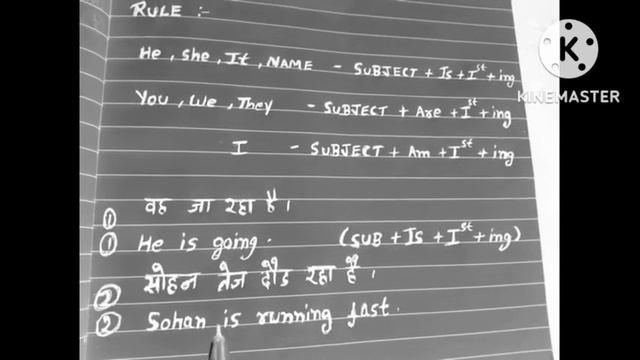 RULE :-
He, She, It, NAME - SUBJECT + Is + Ist + ing
You, We, They - SUBJECT + Are + Ist + ing
I - SUBJECT + Am + Ist + ing
① वह जा रहा है।
① He is going. (SUB + Is + Ist + ing)
② सोहन तेज दौड रहा है।
② Sohan is running fast.
K
KINEMASTER